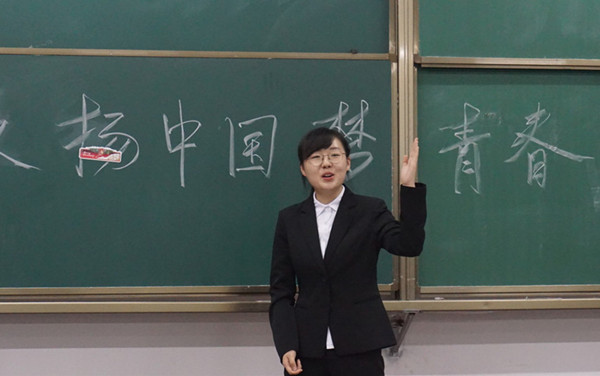 扬中国梦 青春